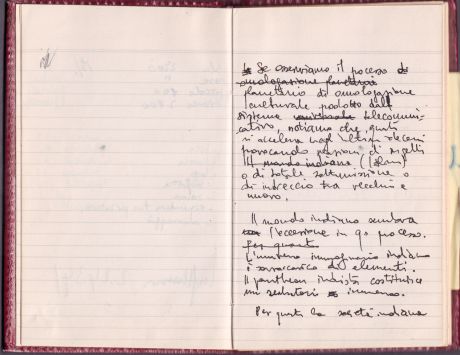 Se osserviamo il pocesso
planetario di omologazione
culturale podotto dal
sistema telecomuni-
cativo, notiamo che, questo
si accelera negli ultimi decenni
provocando reazioni di
Il mondo indiano (Islam)
o di totale sottomissione o
di intreccio tra vecchio e
nuovo.
Il mondo indiano sembra
l'eccezione in qs pocesso.
Per quanto
L'universo immaginario indiano
è sovraccarico di elementi.
Il pantheon induista costituisce
un immenso.
Per questo la società indiana